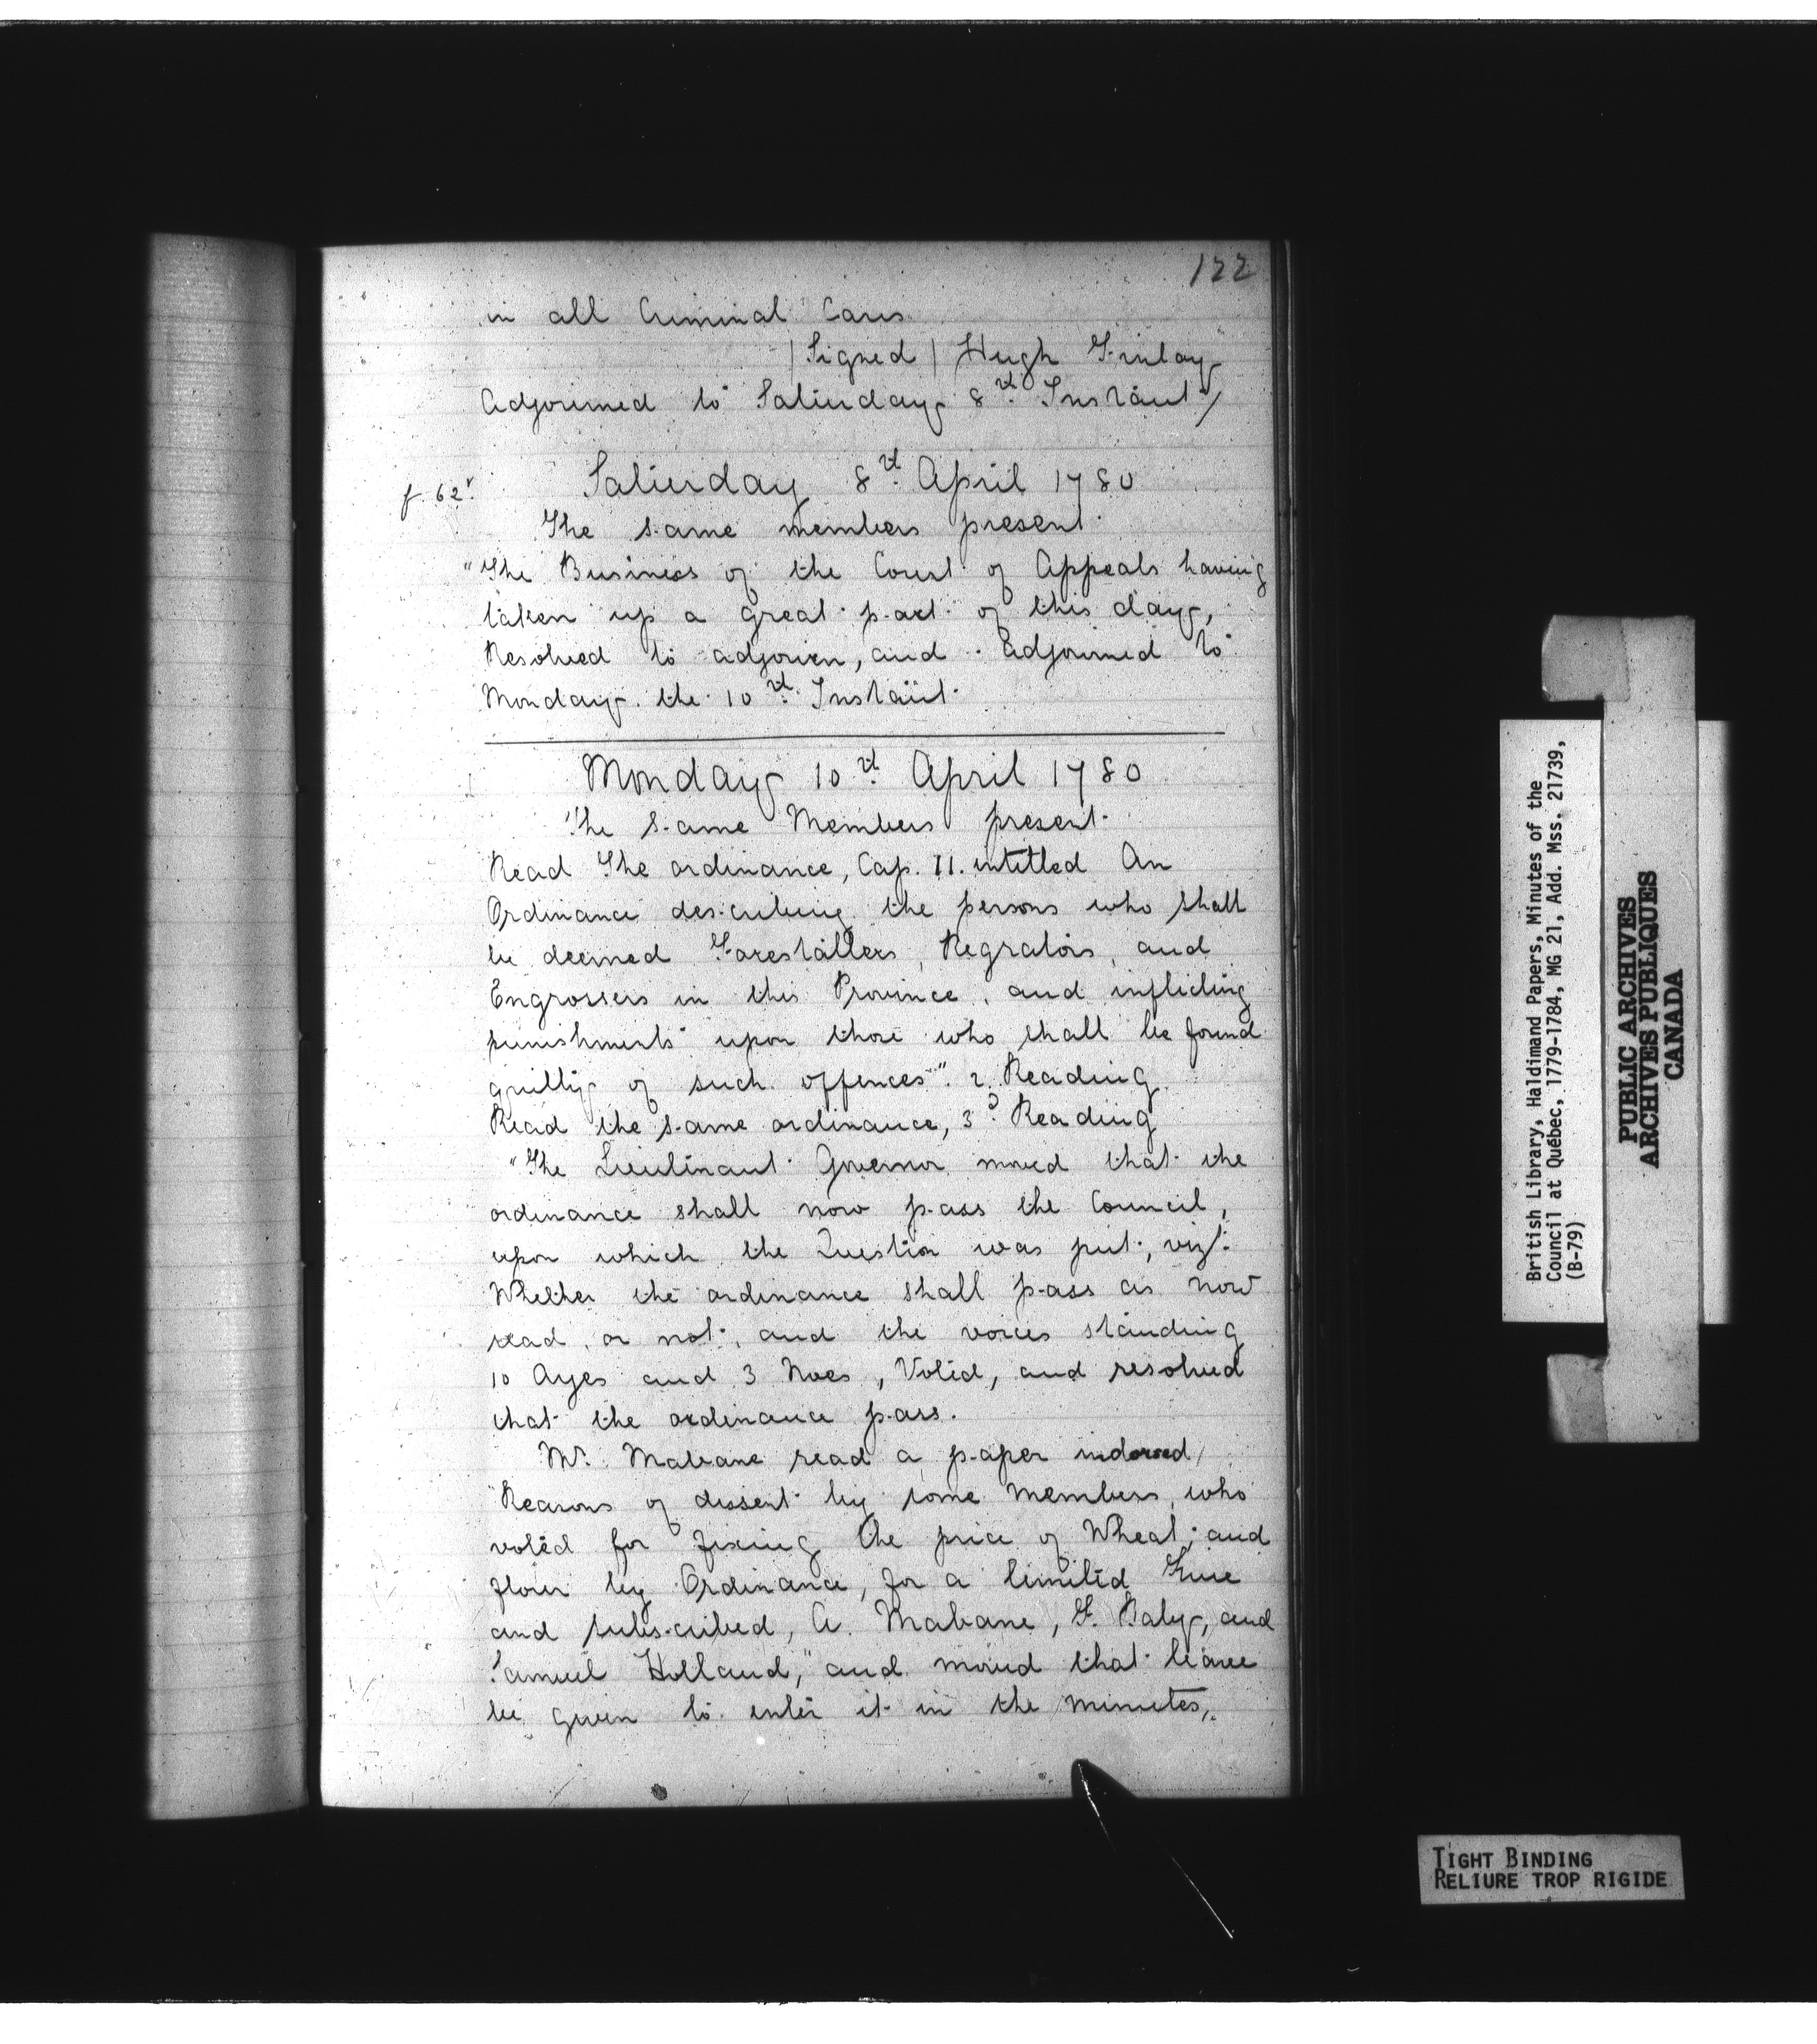 122
in all Criminal Cases
(Signed) Hugh Finlay
Adjourned to Saturday 8th Instant
f. 62v.
Saturday 8th April 1780
The same members present
"The Business of the Court of Appeals having
taken up a great part of this day,
Resolved to adjourn, and Adjourned to
Monday the 10th Instant
Monday 10th April 1780
The same Members present
Read The ordinance, Cap. 11. intitled An
Ordinance describing the persons who shall
be deemed Forestallers, Regrators, and
Engrossers in this Province, and inflicting
punishments upon those who shall be found
guilty of such offences". 2. Reading
Read the same ordinance, 3d Reading
"The Lieutenant Governor moved that the
ordinance shall now pass the Council,
upon which the Question was put, vizt.
Whether the ordinance shall pass as now
read, or not, and the voices standing
10 Ayes and 3 Noes, Voted, and resolved
that the ordinance pass.
Mr. Mabane read a paper indorsed
"Reasons of dissent by some Members, who
voted for fixing the price of Wheat, and
flour by Ordinance, for a limited Time
and subscribed, A. Mabane, F. Baby, and
Samuel Holland," and moved that leave
be given to enter it in the minutes,
British Library, Haldimand Papers, Minutes of the
Council at Québec, 1779-1784, MG 21, Add. Mss. 21739,
(B-79)
PUBLIC ARCHIVES
ARCHIVES PUBLIQUES
CANADA
TIGHT BINDING
RELIURE TROP RIGIDE